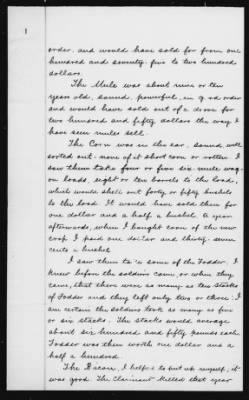 1
order, and would have sold for from one
hundred and seventy five to two hundred
dollars.
The Mule was about nine or ten
years old, sound, powerful, in good order
and would have sold out of a drove for
two hundred and fifty dollars the way I
have seen mules sell.
The Corn was in the ear, sound, well
sorted out: none of it short corn or rotten. I
saw them take four or five six mule wag-
on loads, eight or ten barrels to the load,
which would shell out forty or fifty bushels
to the load. It would have sold then for
one dollar and a half a bushel. A year
afterwards, when I bought corn of the new
crop I paid one dollar and thirty-seven
cents a bushel.
I saw them take some of the Fodder. I
knew before the soldiers came, or when they
came, that there were as many as ten stacks
of fodder and they left only two or three: I
am certain the soldiers took as many as five
or six stacks. The stacks would average
about six hundred and fifty pounds each.
Fodder was then worth one dollar and a
half a hundred.
The Bacon, I helped to put up myself, it
was good. The Claimant killed that year